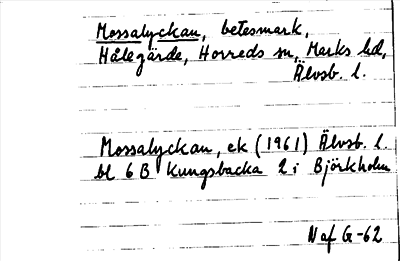 Mossalyckan, betesmark,
Hålegärde, Horreds sn, Marks hd,
Älvsb. l.
Mossalyckan, ek (1961) Älvsb. l.
bl 6 B Kungsbacka 2 i Björkholm
N af G-62